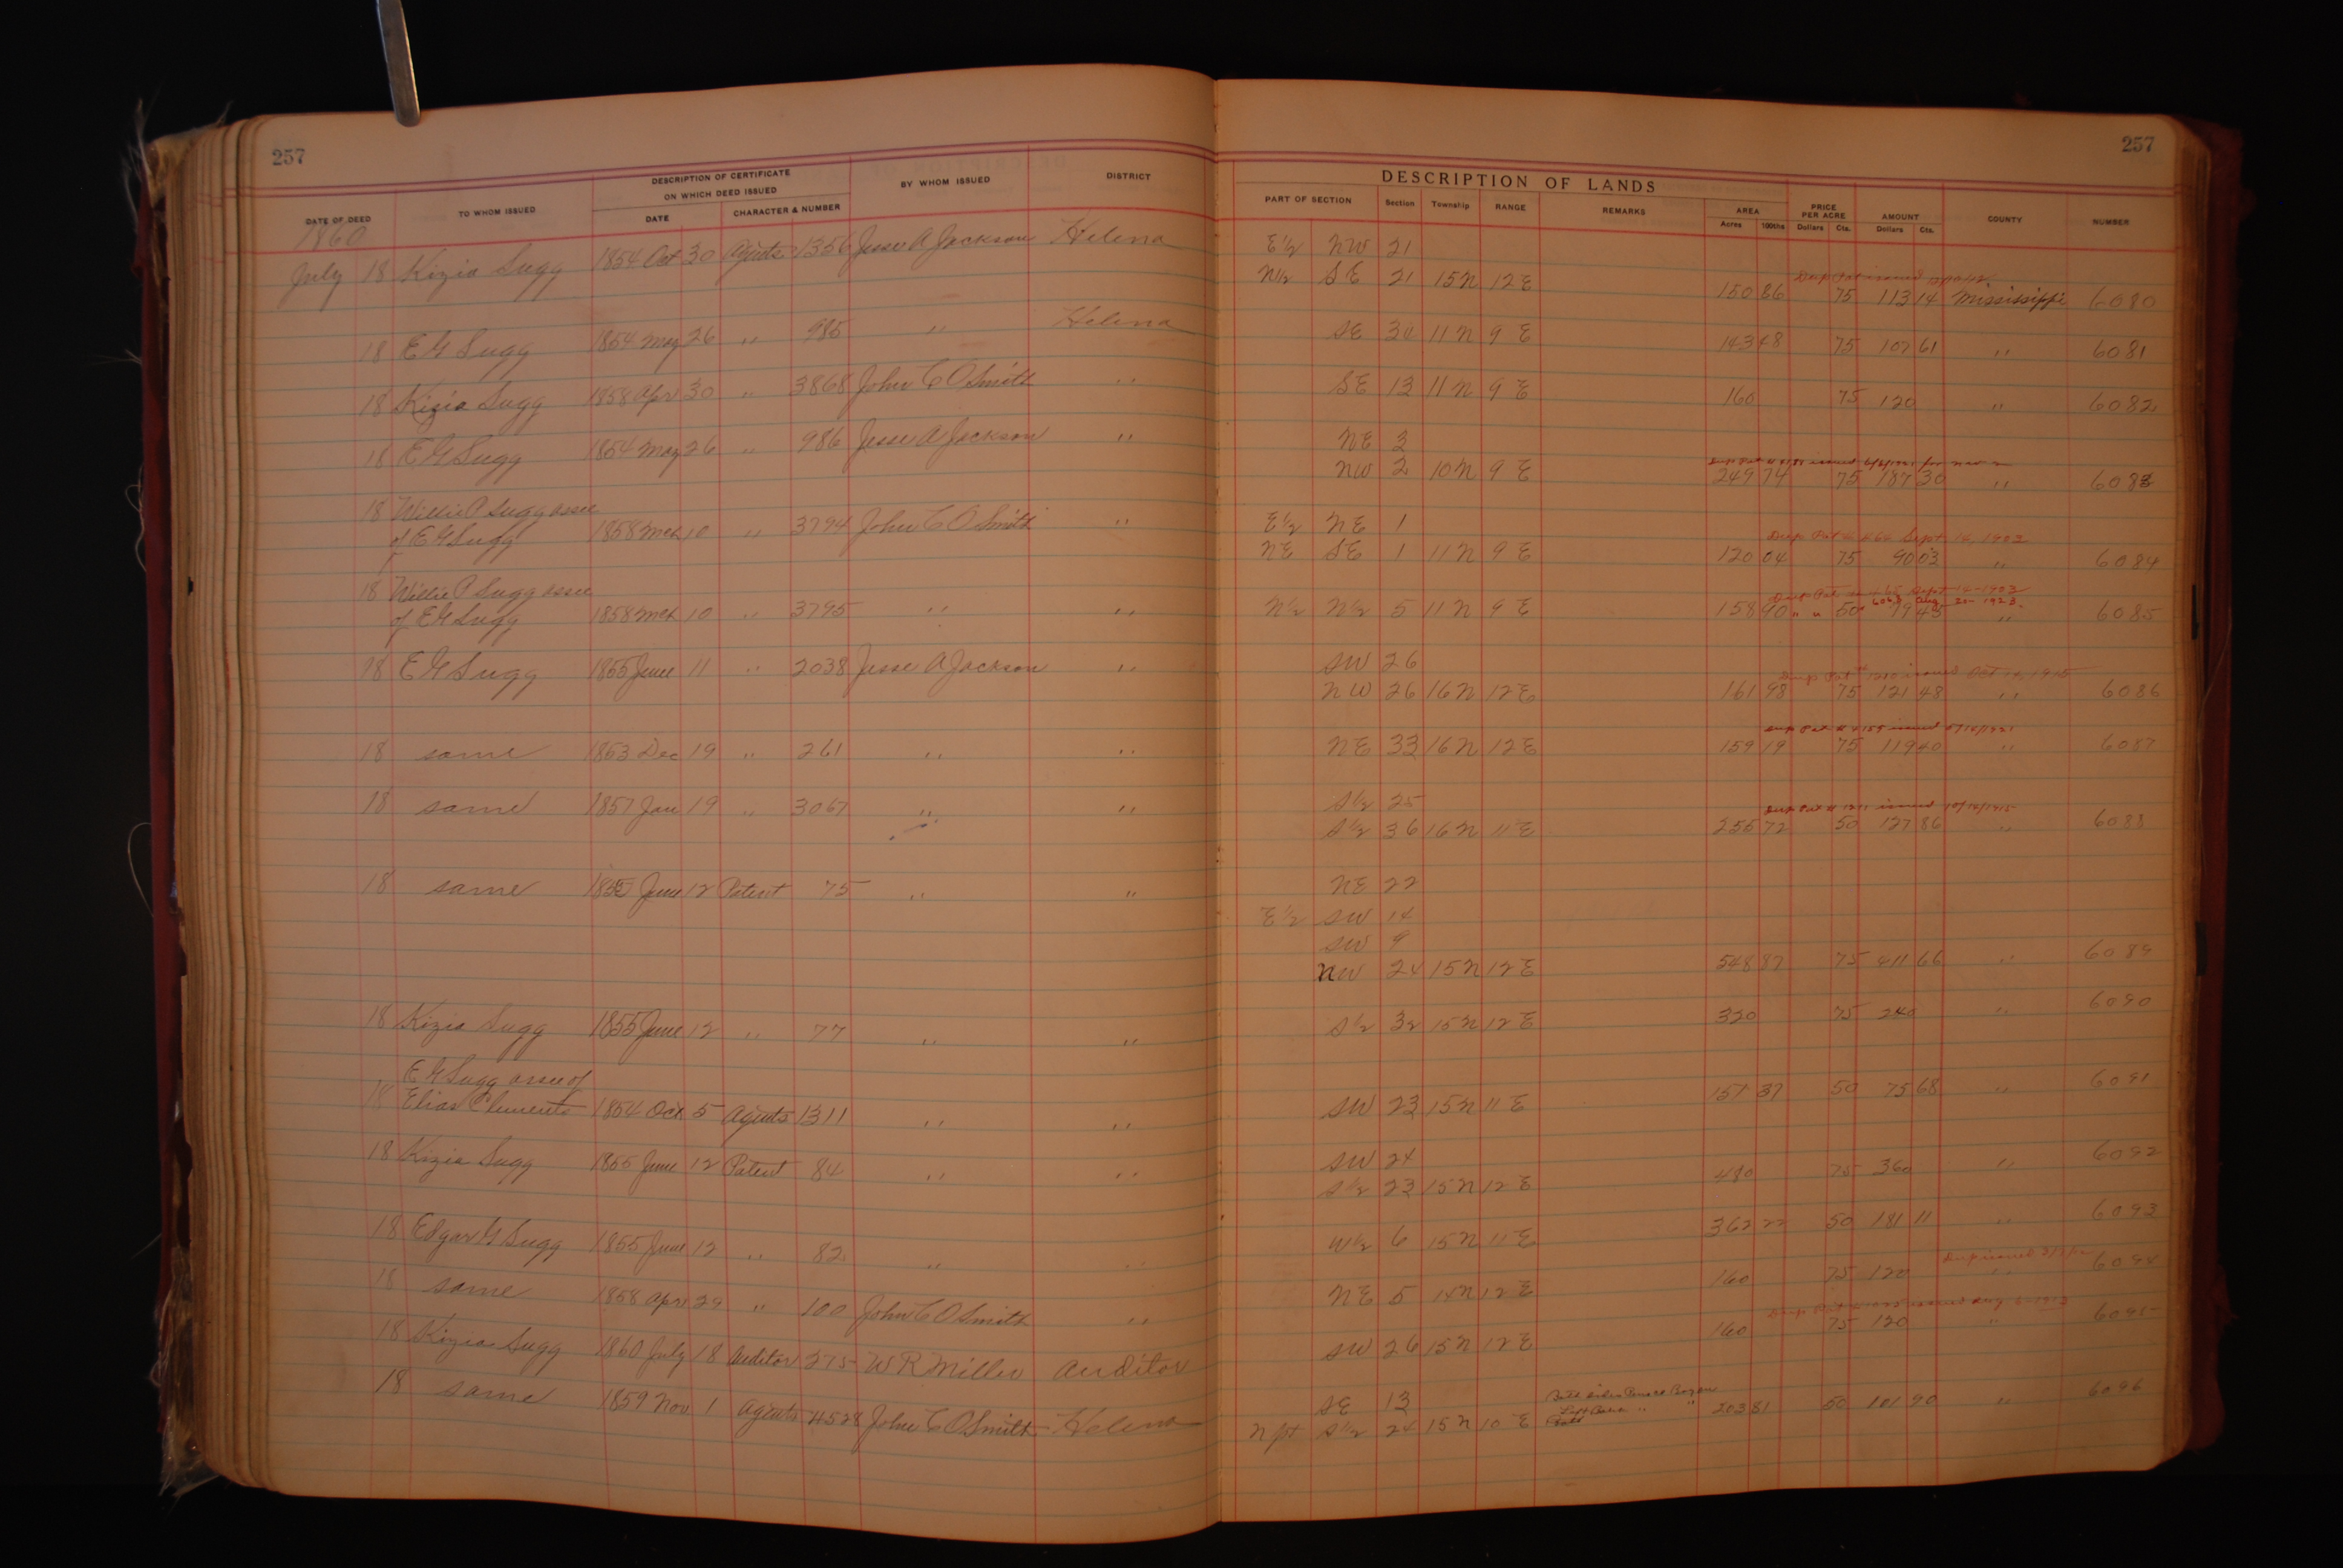 257
257
DATE OF DEED TO WHOM ISSUED DESCRIPTION OF CERTIFICATE ON WHICH DEED ISSUED BY WHOM ISSUED DISTRICT
DATE CHARACTER & NUMBER
DESCRIPTION OF LANDS
PART OF SECTION Section Township RANGE REMARKS AREA PRICE PER ACRE AMOUNT COUNTY NUMBER
Acres 100ths Dollars Cts. Dollars Cts.
1860
July 18 Kizia Sugg 1854 Oct 30 Agents 1356 Jesse A Jackson Helena E½ NW 21
N½ SE 21 15N 12E 150 86 75 113 14 Mississippi 6080
Dup Pat issued
18 E G Sugg 1854 May 26 " 985 " Helena SE 34 11N 9E 143 48 75 107 61 " 6081
18 Kizia Sugg 1858 Apr 30 " 3868 John C O Smith " SE 13 11N 9E 160 75 120 " 6082
18 E G Sugg 1854 May 26 " 986 Jesse A Jackson " NE 3
NW 2 10N 9E 249 74 75 187 30 " 6083
18 Willie P Sugg assee
of E G Sugg 1858 Mch 10 " 3794 John C O Smith " E½ NE 1
NE SE 1 11N 9E 120 04 75 90 03 " 6084
Dup Pat Sept 14 1903
18 Willie P Sugg assee
of E G Sugg 1858 Mch 10 " 3795 " " N½ N½ 5 11N 9E 158 90 50 79 45 " 6085
Dup Pat Sept 14-1903
" " 6063 Aug 20-1923
18 E G Sugg 1855 June 11 " 2038 Jesse A Jackson " SW 26
NW 26 16N 12E 161 98 75 121 48 " 6086
Dup Pat issued Oct 14, 1915
18 same 1853 Dec 19 " 261 " " NE 33 16N 12E 159 19 75 119 40 " 6087
18 same 1857 Jan 19 " 3067 " " S½ 25
S½ 36 16N 11E 255 72 50 127 86 " 6088
Dup Pat # 1211 issued 10/14/1915
18 same 1855 June 12 Patent 75 " " NE 22
E½ SW 14
SW 9
NW 24 15N 12E 548 87 75 411 66 " 6089
18 Kizia Sugg 1855 June 12 " 77 " " S½ 32 15N 12E 320 75 240 " 6090
E G Sugg assee of
18 Elias Clements 1854 Oct 5 Agents 1311 " " SW 23 15N 11E 151 37 50 75 68 " 6091
18 Kizia Sugg 1855 June 12 Patent 84 " " SW 24
S½ 23 15N 12E 480 75 360 " 6092
18 Edgar G Sugg 1855 June 12 " 82 " " W½ 6 15N 11E 362 22 50 181 11 " 6093
18 same 1858 Apr 29 " 100 John C O Smith " NE 5 14N 12E 160 75 120 " 6094
18 Kizia Sugg 1860 July 18 Auditor 275 W R Miller Auditor SW 26 15N 12E 160 75 120 " 6095
18 same 1859 Nov 1 Agents 4528 John C O Smith Helena SE 13
N pt S½ 24 15N 10E 203 81 50 101 90 " 6096